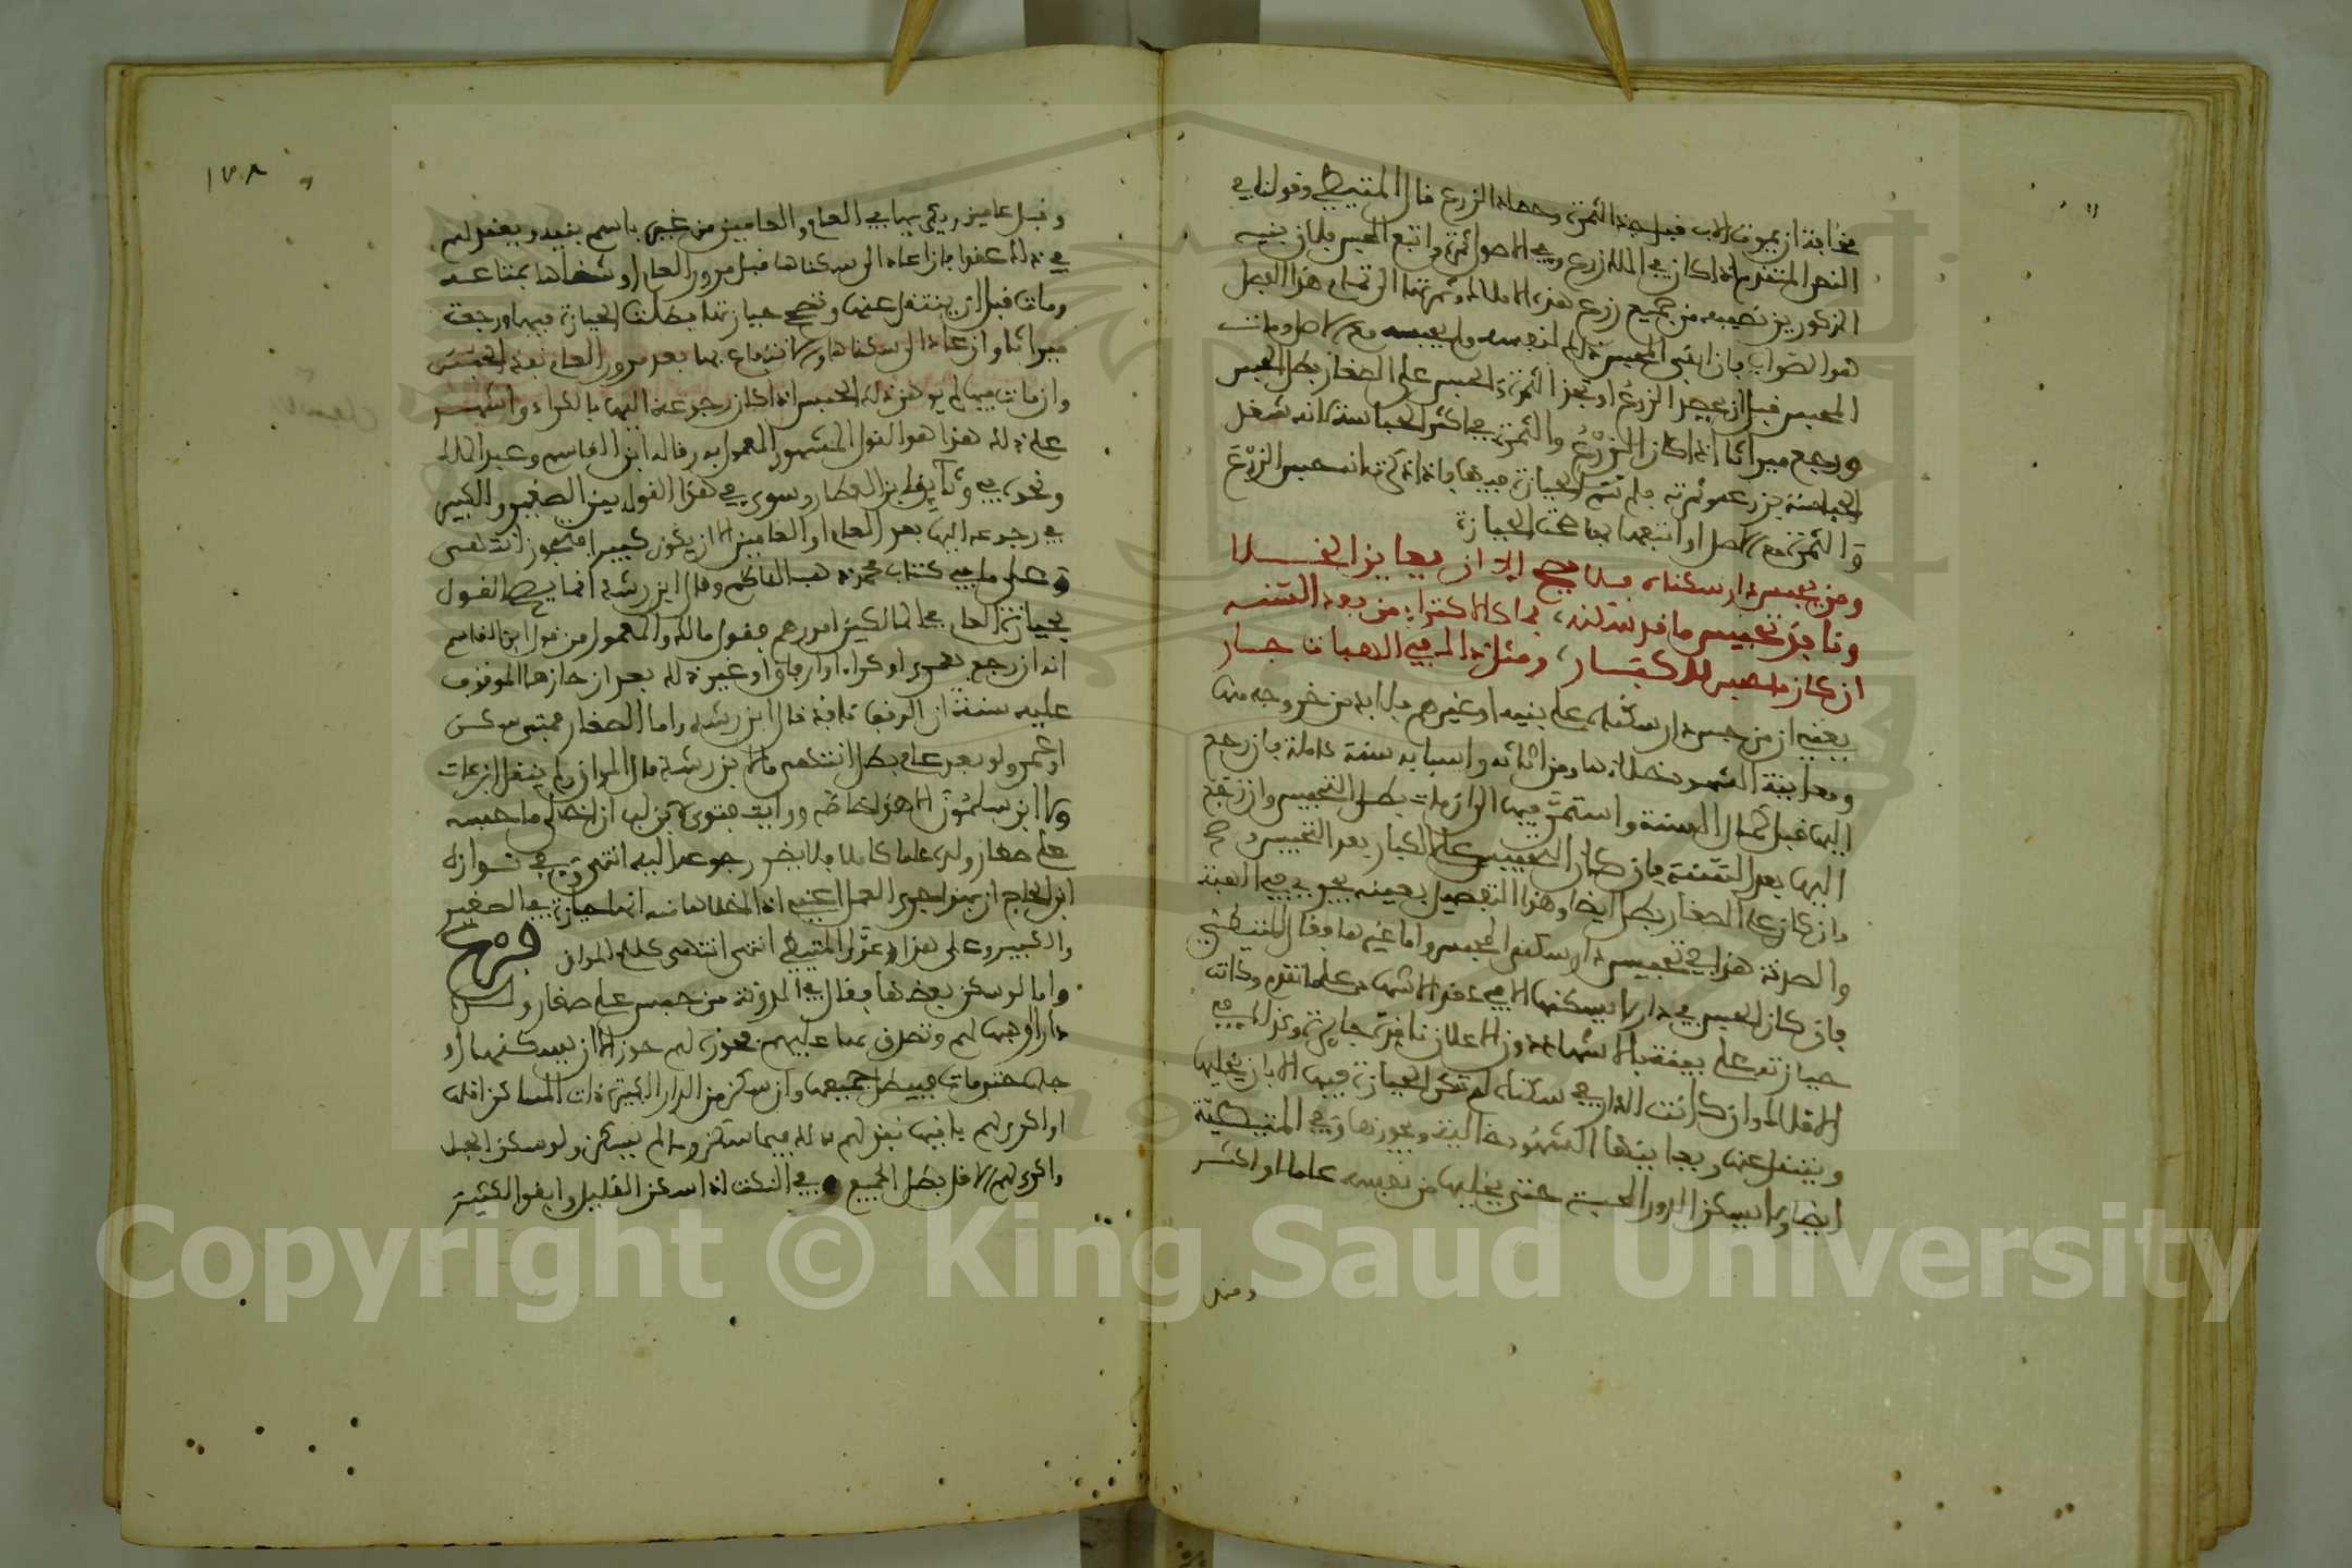 مخافة ان يموت الاب قبل جذ الثمرة وحصاد الزرع قال المتيطي وقولنا في
النص المتقدم اذا كان في الملك زرع وفي الاصول ثمرة واتبع المحبس فلان بنيه
المذكورين نصيبه من جميع زرع هذه الاملاك وثمرتها الى تمام هذا الفصل
هو الصواب فان ابقى المحبس ذلك لنفسه ولم يحبسه مع الاصل ومات
المحبس قبل ان يحصد الزرع او تجذ الثمرة والحبس على الصغار بطل الحبس
ورجع ميراثا اذا كان الزرع والثمرة في اكثر الحباسة لانه شغل
الحباسة بزرعه وثمرته فلم تتم الحيازة فيها واذا ذكر انه حبس الزرع
والثمرة مع الاصل او اتبعها بها صحت الحيازة
ومن يحبس دار سكناه فلا يصح الا ان يعاين الخلا
ونافذ تحبيس ما قد سكنه بما كالاكتراء من بعد السنه
ان كان ما حبس للكبار ومثل ذلك في الهبات جار
يعني ان من حبس دار سكناه على بنيه او غيرهم فلا بد من خروجه منها
ومعاينة الشهود خلاءها من اثاثه واسبابه سنة كاملة فان رجع
اليها قبل كمال السنة واستمر فيها الى ان مات بطل التحبيس وان رجع
اليها بعد السنة فان كان التحبيس على الكبار بعد التحبيس وصح
وان كان على الصغار بطل ايضا وهذا التفصيل بعينه يجري في الهبة
والصدقة هذا في تحبيس دار سكنى المحبس واما غيرها فقال المتيطي
فان كان الحبس في دار لا يسكنها الاب عقد الاشهاد على ما تقدم وكانت
حيازته على بعقد الاشهاد دون الاعلان نافذة جايزة وكذلك في
الاملاك وان كانت الدار في سكناه لم تكن الحيازة فيها الا بان يخليها
وينتقل عنها ويعاينها الشهود خالية ويحوزها وفي المتيطية
ايضا ولا يسكن الدور المحبسة حتى يخليها من نفسه عاما او اكثر
ومنه
١٧٨
وقبل عامين ويكريها في العام او العامين من غيره باسم بنيه ويعقد لهم
في ذلك عقدا فان عاد الى سكناها قبل مرور العام او شغلها بمتاعه
ومات قبل ان ينتقل عنها وتصح حيازتها بطلت الحيازة فيها ورجعت
ميراثا وان عاد الى سكناها والانتفاع بها بعد مرور العام نفذ الحبس
وان مات فيها لم يوهن ذلك الحبس اذا كان رجوعه اليها بالكراء واشهد
على ذلك هذا هو القول المشهور المعمول به وقاله ابن القاسم وعبد الملك
ونحوه في وثايق ابن العطار وسوى في هذا القول بين الصغير والكبير
في رجوعه اليها بعد العام او العامين الا ان يكون كبيرا فيجوز انتهى
وعلى ما في كتاب محمد ذهب الناظم وقال ابن رشد انما يصح القول
بحيازة العام في المالكين امورهم فقول مالك والمعمول من قول ابن القاسم
انه ان رجع بعمرى او كراء او ارفاق او غير ذلك بعد ان حازها الموقوف
عليه سنة ان الوقف نافذ قال ابن رشد واما الصغار فمتى سكن
او عمر ولو بعد عام بطل انتهى ما لابن رشد قال المواق ولم ينقل ابن عات
ولا ابن سلمون الا هذا خاصة ورايت فتوى لابن لب ان اخلى ما حبسه
على صغار ولده عاما كاملا فلا يضر رجوعه اليه انتهى وفي نوازل
ابن الحاج ان بهذا جرى العمل اعني اذا اخلاها سنه انها حيازة في الصغير
والكبير وعلى هذا عول المتيطي انتهى انتهى كلام المواق فرع
واما لو سكن بعضها فقال في المدونة من حبس على صغار ولده
دارا او وهبها لهم او تصدق بها عليهم فحوزه لهم حوز الا ان يسكنها او
جلها حتى مات فيبطل جميعها وان سكن من الدار الكبيرة ذات المساكن اقلها
او اكرى لهم باقيها نفذ لهم ذلك فيما سكن وما لم يسكن ولو سكن الجل
واكرى لهم الاقل بطل الجميع وفي النكت اذا سكن القليل وابقى الكثير
Copyright © King Saud University